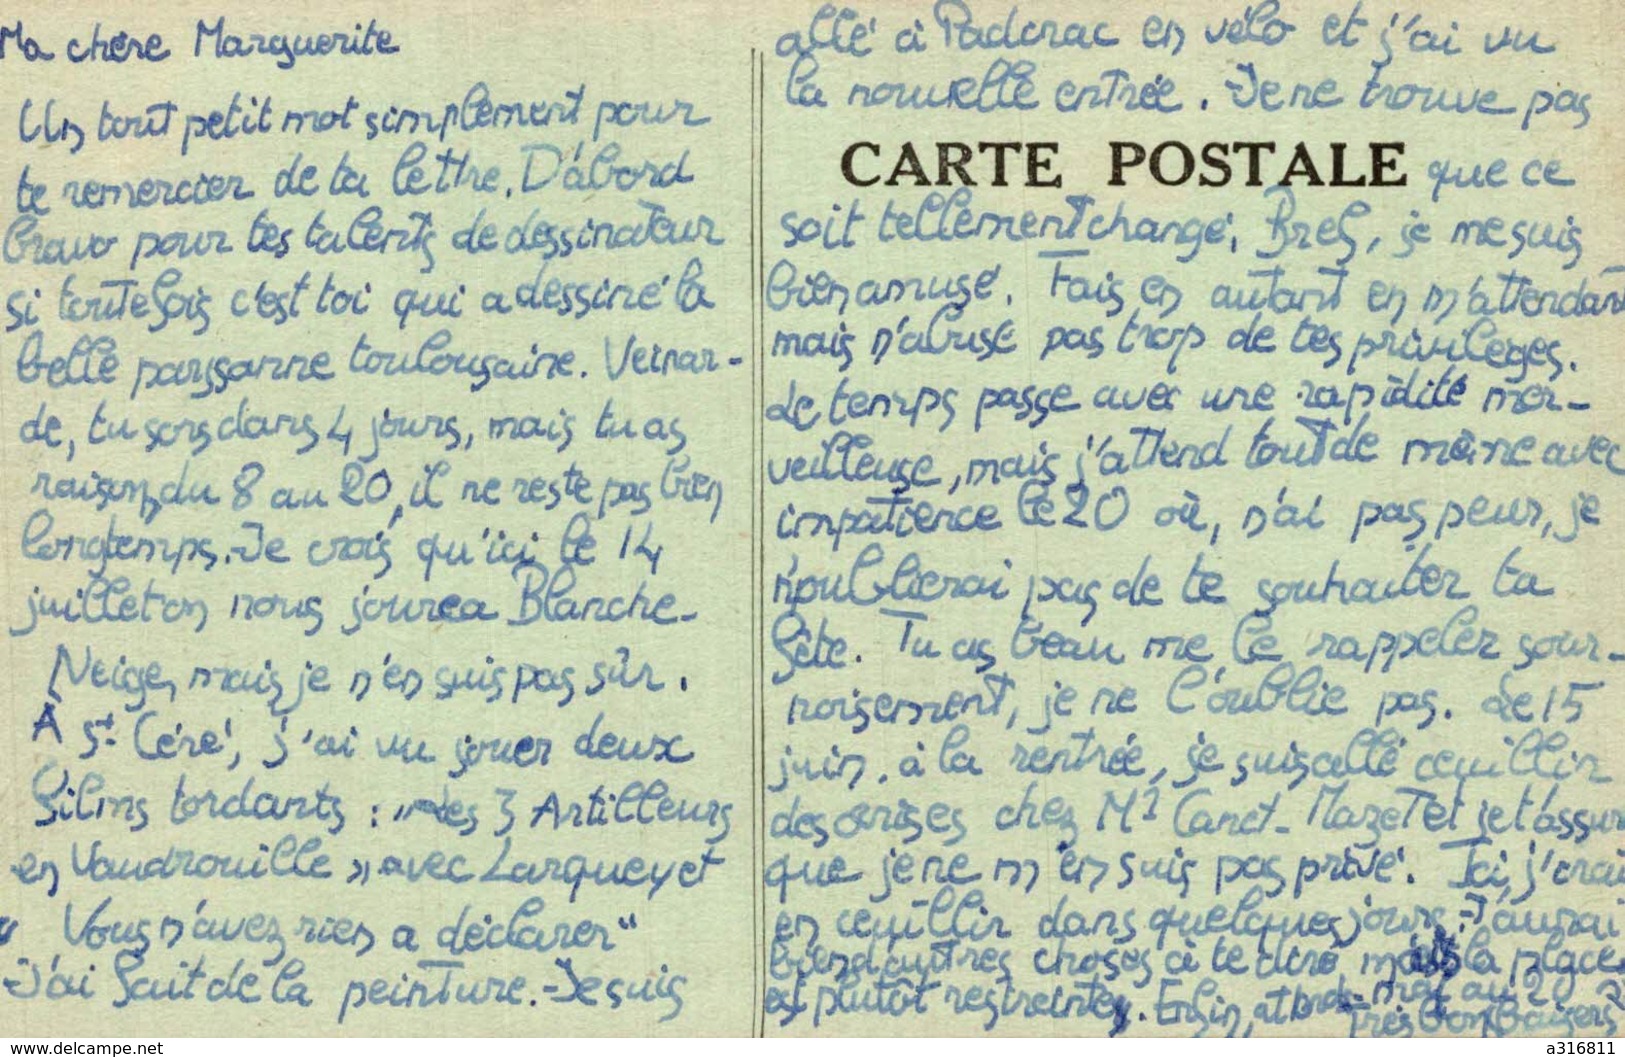 Ma chère Marguerite
Un tout petit mot simplement pour
te remercier de ta lettre. D'abord
bravo pour tes talents de dessinateur
si toutefois c'est toi qui a dessiné la
belle paysanne toulousaine. Veinar-
de, tu sors dans 4 jours, mais tu as
raison, du 8 au 20, il ne reste pas bien
longtemps. Je crois qu'ici le 14
juillet on nous jouera Blanche-
Neige, mais je n'en suis pas sûr.
À St Céré, j'ai vu jouer deux
films tordants : "Les 3 Artilleurs
en Vaudrouille » avec Larquey et
" Vous n'avez rien a déclarer"
J'ai fait de la peinture. - Je suis
allé à Padirac en vélo et j'ai vu
la nouvelle entrée. Je ne trouve pas
CARTE POSTALE que ce
soit tellement changé. Bref, je me suis
bien amusé. Fais en autant en m'attendant
mais n'abuse pas trop de tes privilèges.
Le temps passe avec une rapidité mer-
veilleuse, mais j'attend tout de même avec
impatience le 20 où, n'ai pas peur, je
n'oublierai pas de te souhaiter ta
fête. Tu as beau me le rappeler sour-
noisement, je ne l'oublie pas. Le 15
juin, à la rentrée, je suis allé ceuillir
des cerises chez Mr Canct-Mazet et je t'assure
que je ne m'en suis pas privé. Ici, j'irai
en ceuillir dans quelques jours. J'aurai
bien d'autres choses à te dire mais la place
est plutôt restreinte. Enfin, attends-moi au 20
Très bons baisers
www.delcampe.net
a316811